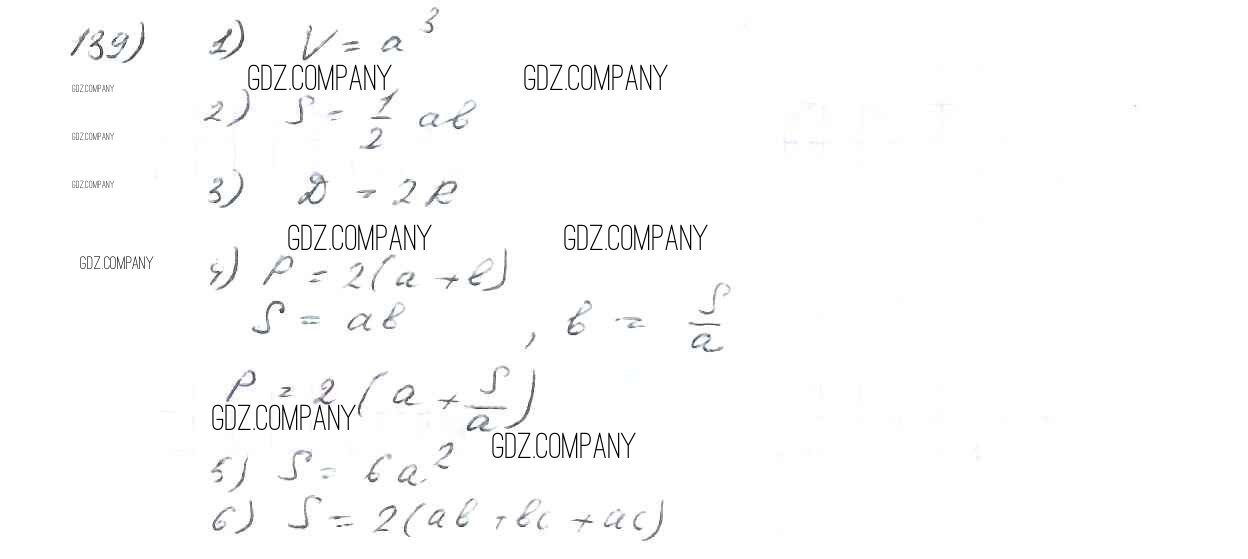 139) 1) V = a³
GDZ.COMPANY GDZ.COMPANY
GDZ.COMPANY
2) S = 1/2 ab
GDZ.COMPANY
GDZ.COMPANY
3) D = 2R
GDZ.COMPANY GDZ.COMPANY
GDZ.COMPANY
4) P = 2(a + b)
S = ab , b = S/a
P = 2(a + S/a)
GDZ.COMPANY
GDZ.COMPANY
5) S = 6a²
6) S = 2(ab + bc + ac)